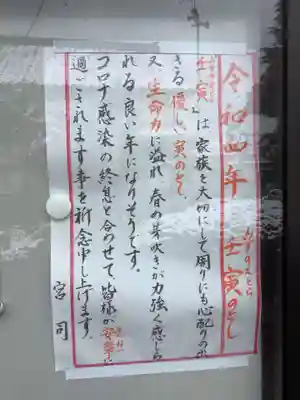 令和四年 壬寅のとし
みずのえとら
「壬寅」は家族を大切にして周りにも心配りの出
きる優しい寅のとし、
又、生命力に溢れ、春の芽吹きが力強く感じら
れる良い年になりそうです。
コロナ感染の終息と合のせて、皆様が安楽に
過ごされます事を祈念申し上げます。
宮司